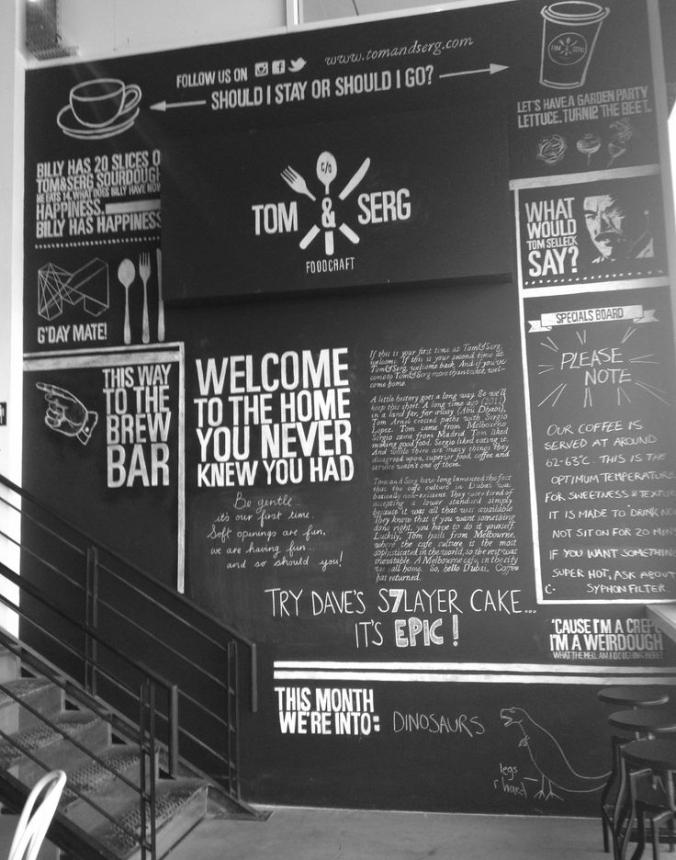 FOLLOW US ON
www.tomandserg.com
SHOULD I STAY OR SHOULD I GO?
TOM & SERG
LET'S HAVE A GARDEN PARTY
LETTUCE. TURNIP THE BEET.
BILLY HAS 20 SLICES O
TOM&SERG SOURDOUGH
HE EATS 14. WHAT DOES BILLY HAVE NOW
HAPPINESS.
BILLY HAS HAPPINESS
TOM & SERG
FOODCRAFT
WHAT
WOULD
TOM SELLECK
SAY?
G'DAY MATE!
SPECIALS BOARD
PLEASE
NOTE
OUR COFFEE IS
SERVED AT AROUND
62-63°C. THIS IS THE
OPTIMUM TEMPERATURE
FOR SWEETNESS & TEXTU
IT IS MADE TO DRINK NO
NOT SIT ON FOR 20 MIN
IF YOU WANT SOMETHIN
SUPER HOT, ASK ABOUT
C- SYPHON FILTER.
THIS WAY
TO THE
BREW
BAR
WELCOME
TO THE HOME
YOU NEVER
KNEW YOU HAD
Be gentle
it's our first time.
Soft openings are fun,
we are having fun
and so should you!
If this is your first time at Tom&Serg,
welcome. If this is your second time at
Tom&Serg, welcome back. And if you've
come to Tom&Serg more than twice, wel-
come home.
A little history goes a long way. So we'll
keep this short. A long time ago (2011)
in a land far, far away (Abu Dhabi),
Tom Arnel crossed paths with Sergio
Lopez. Tom came from Melbourne
Sergio came from Madrid. Tom liked
making good food. Sergio liked eating it.
And while there are many things they
disagreed upon, superior food, coffee and
service wasn't one of them.
Tom and Serg have long lamented the fact
that the cafe culture in Dubai was
basically non-existent. They were tired of
accepting a lower standard simply
because it was all that was available
They knew that if you want something
done right, you have to do it yourself.
Luckily, Tom hails from Melbourne,
where the cafe culture is the most
sophisticated in the world, so the rest was
inevitable. A Melbourne cafe, in the city
we all home. So, hello Dubai, Coffee
has returned.
TRY DAVE'S 7LAYER CAKE...
IT'S EPIC!
'CAUSE I'M A CREP
I'M A WEIRDOUGH
WHAT THE HELL AM I DOUGHING HERE?
THIS MONTH
WE'RE INTO: DINOSAURS
legs
r hard